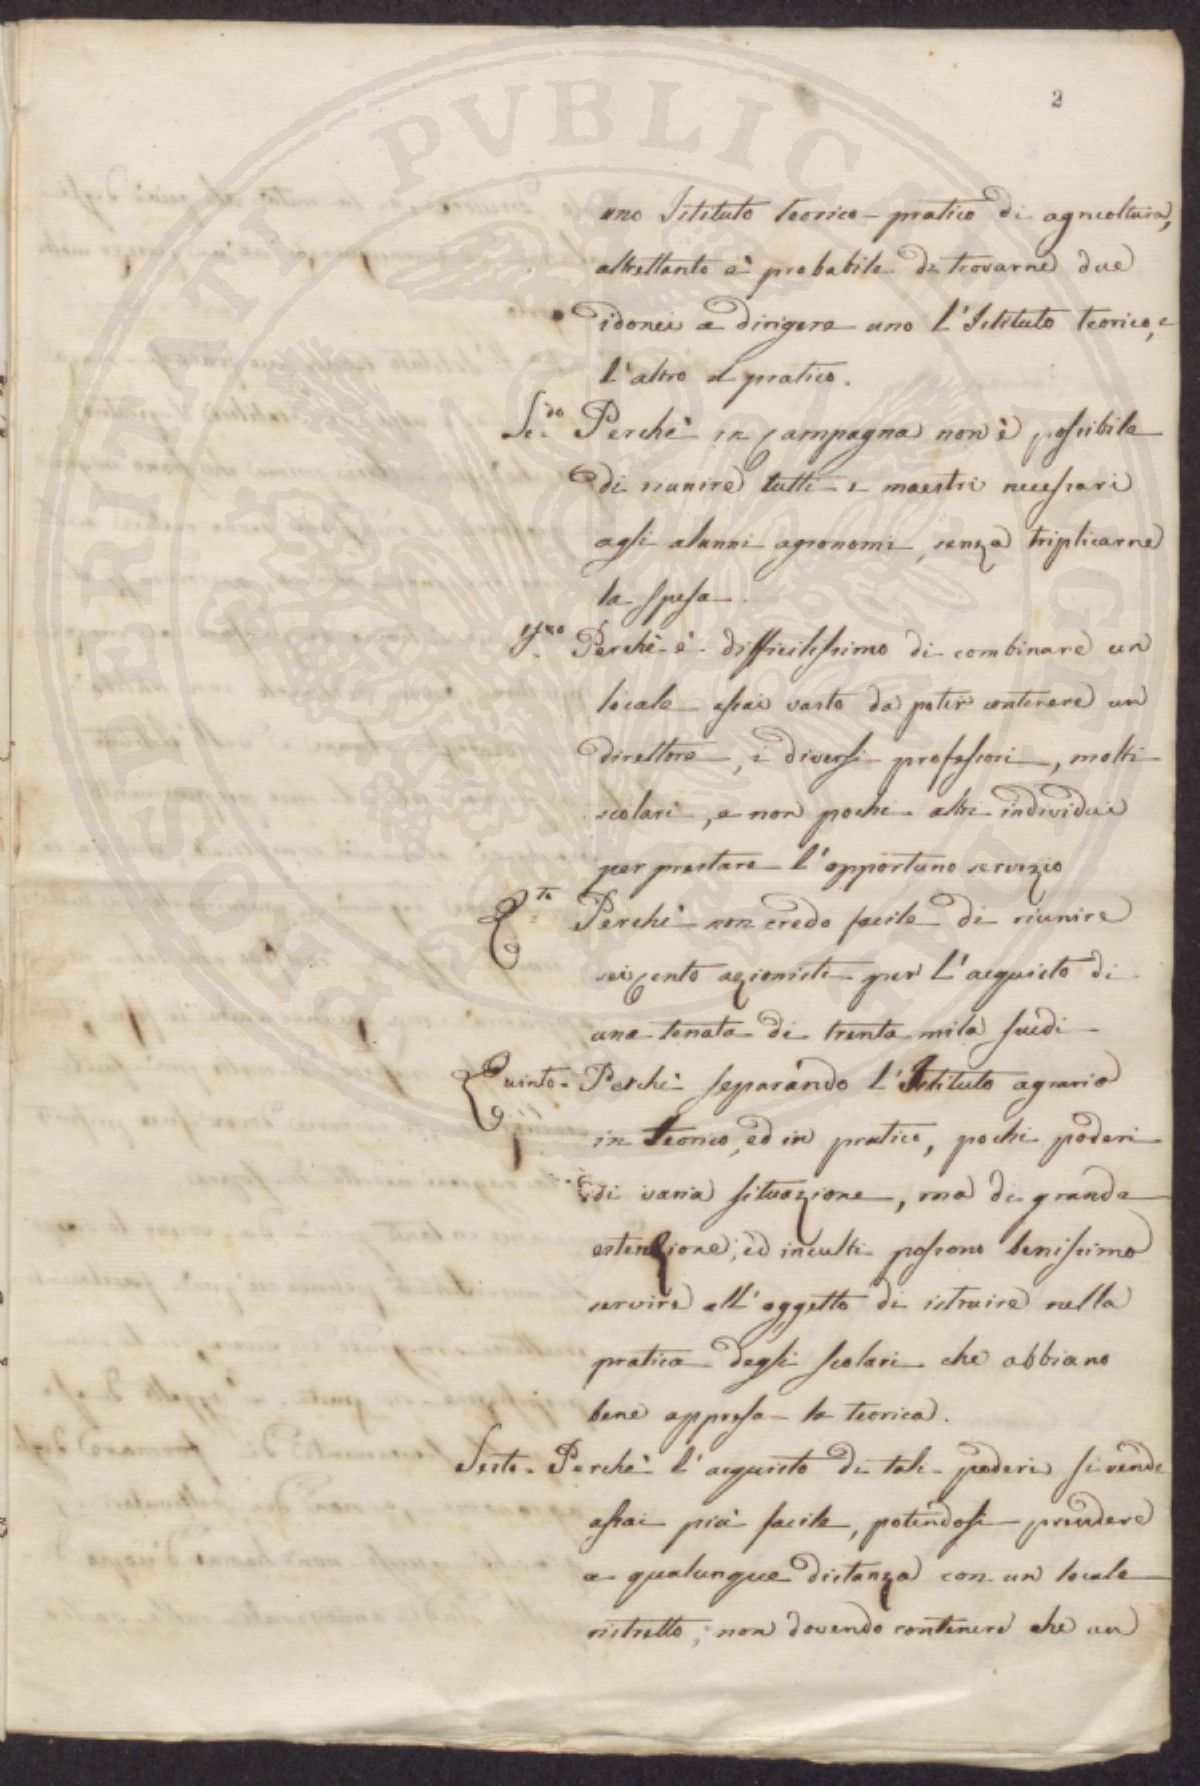 2
uno Istituto teorico-pratico di agricoltura,
altrettanto è probabile di trovarne due
idonei a dirigere uno l'Istituto teorico, e
l'altro il pratico.
Se.do Perchè in campagna non è possibile
di riunire tutti i maestri necessari
agli alunni agronomi, senza triplicarne
la spesa.
Perchè è difficilissimo di combinare un
locale assai vasto da poter contenere un
direttore, i diversi professori, molti
scolari, e non pochi altri individui
per prestare l'opportuno servizio
Q.to Perchè non credo facile di riunire
seicento azionisti per l'acquisto di
una tenuta di trenta mila scudi
Quinto. Perchè separando l'Istituto agrario
in teorico, ed in pratico, pochi poderi
di varia situazione, ma di grande
estenzione, ed inculti possono benissimo
servire all'oggetto di istruire nella
pratica degli scolari che abbiano
bene appresa la teorica.
Sesto. Perchè l'acquisto di tali poderi si rende
assai più facile, potendosi prendere
a qualunque distanza con un locale
ristretto, non dovendo contenere che un
POSTERITATI PVBLICAE